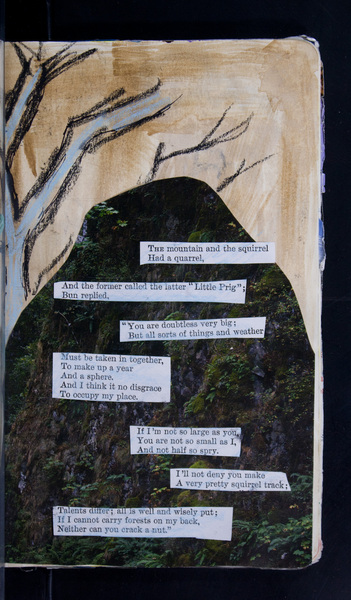 THE mountain and the squirrel
Had a quarrel,
And the former called the latter "Little Prig";
Bun replied,
"You are doubtless very big;
But all sorts of things and weather
Must be taken in together,
To make up a year
And a sphere.
And I think it no disgrace
To occupy my place.
If I'm not so large as you,
You are not so small as I,
And not half so spry.
I'll not deny you make
A very pretty squirrel track;
Talents differ; all is well and wisely put;
If I cannot carry forests on my back,
Neither can you crack a nut."